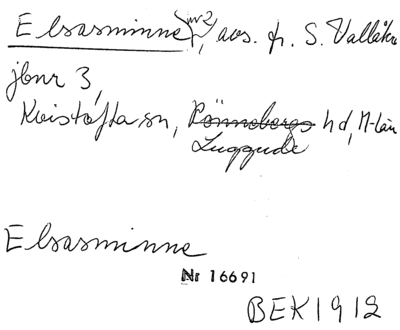 Elsasminne nr 2, avs. fr. S. Vallåkra
jbnr 3,
Kvistofta sn, Rönnebergs hd, M-län
Luggude
Elsasminne
Nr 16691
BEK 1912